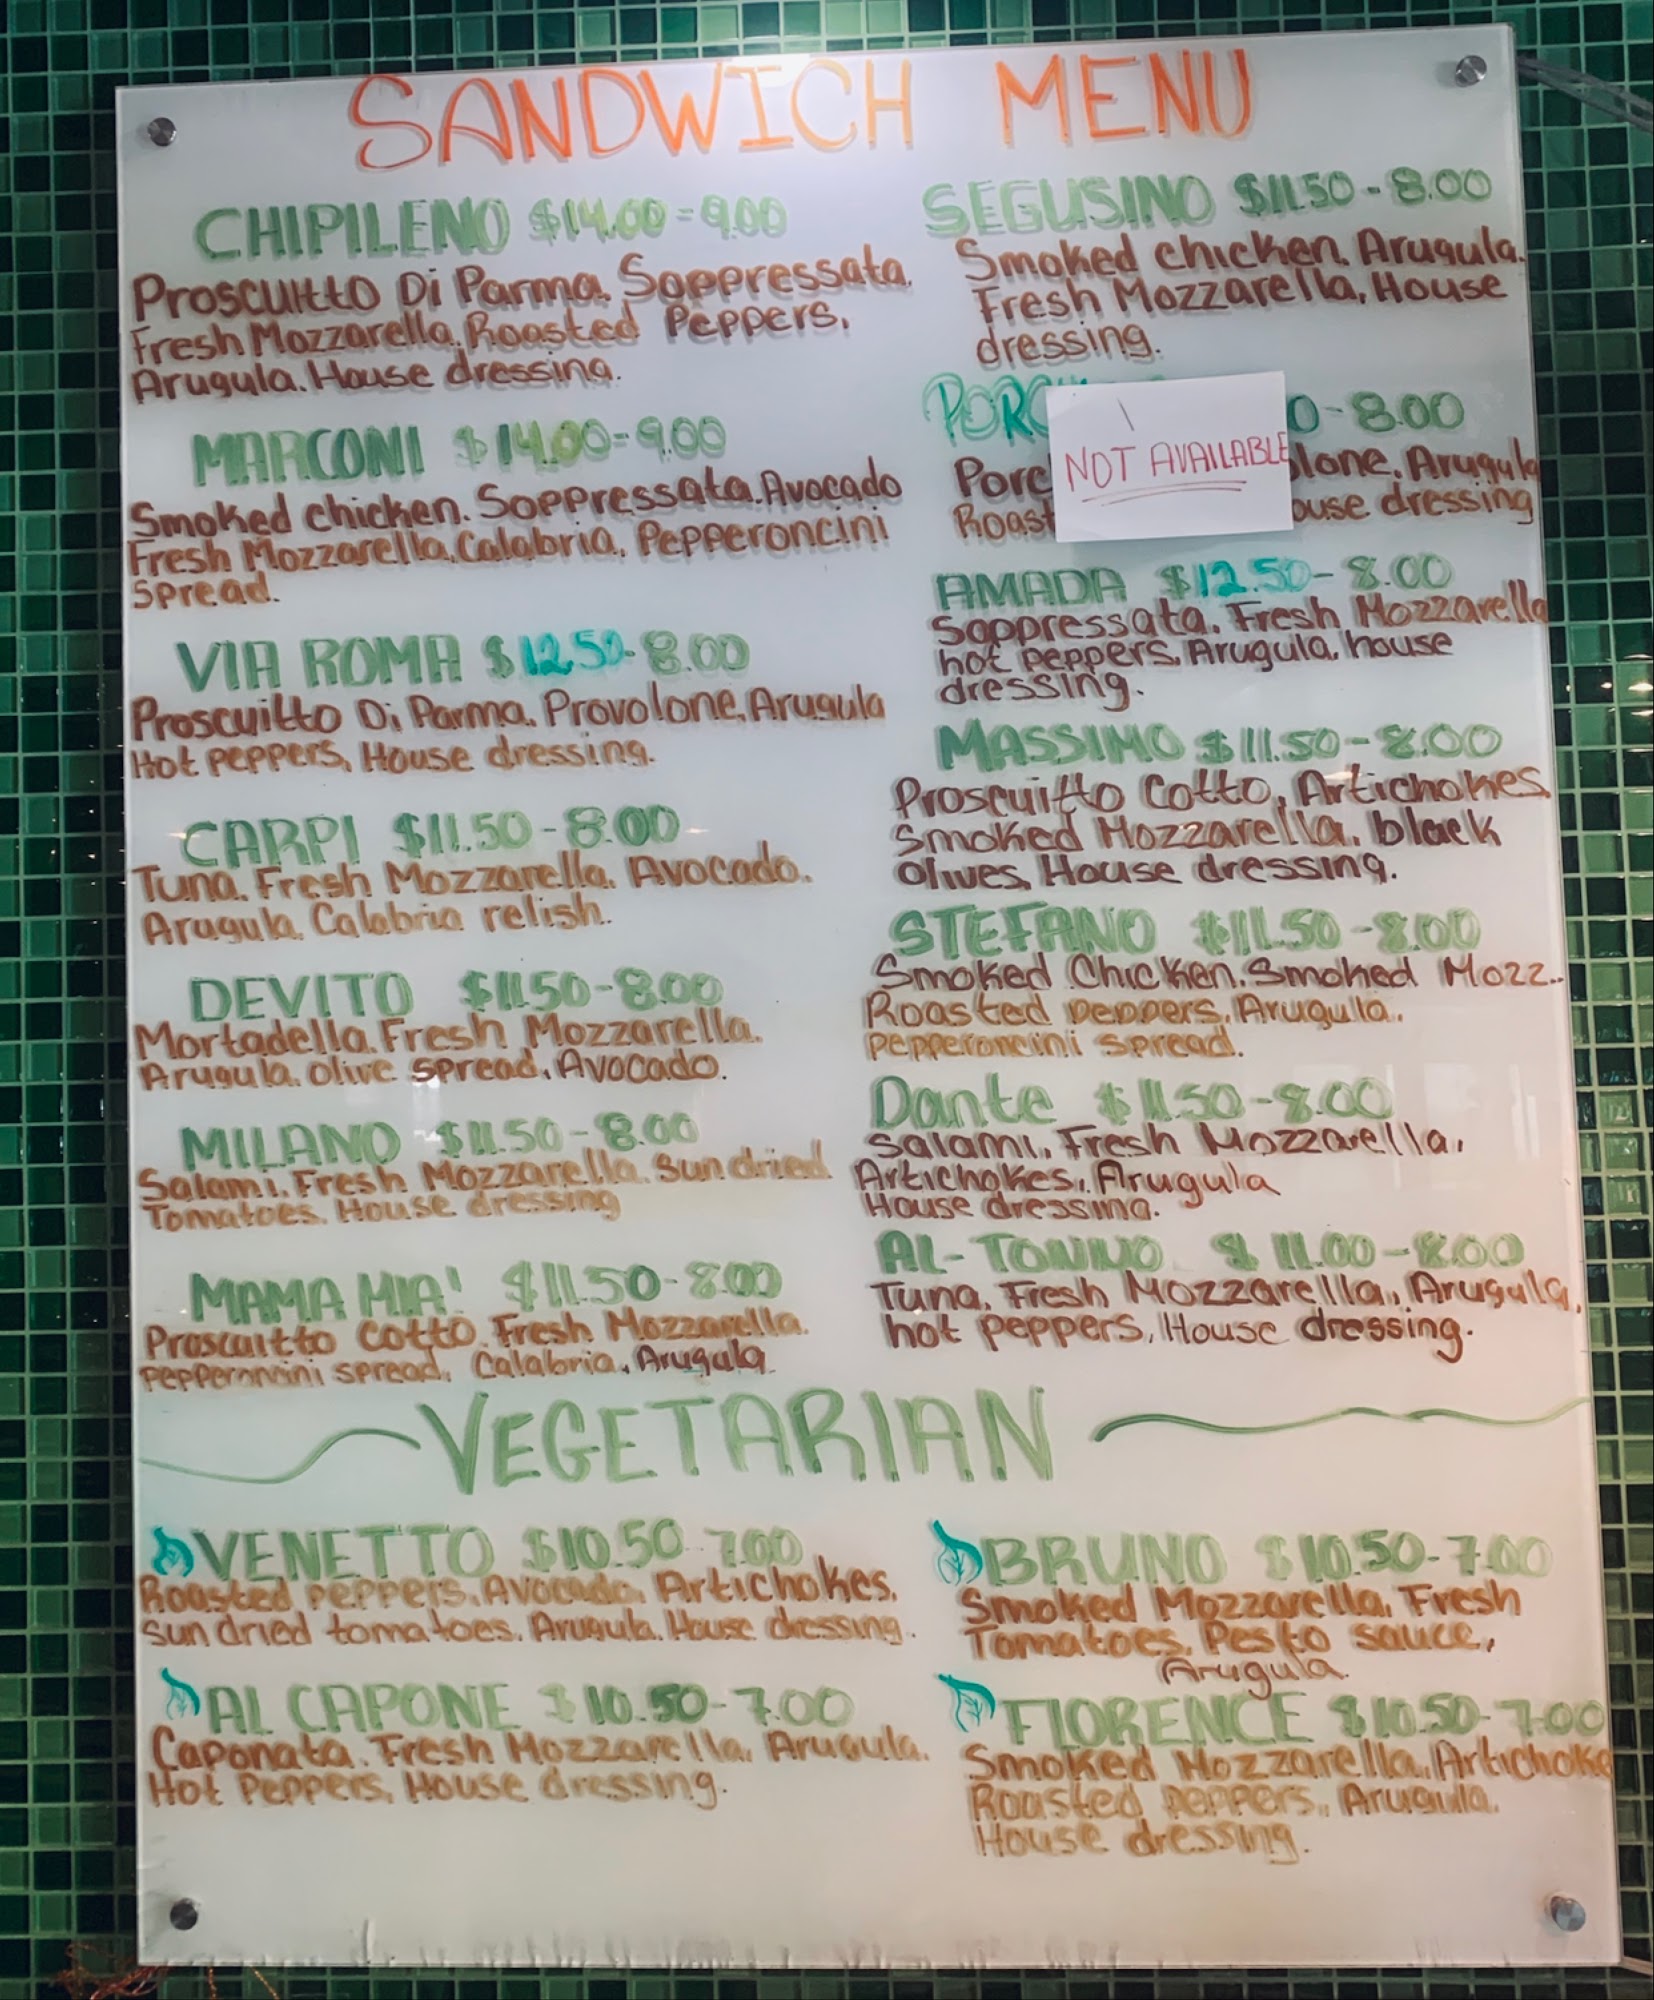 SANDWICH MENU
CHIPILENO $14.00-9.00
Proscuitto Di Parma, Soppressata,
Fresh Mozzarella, Roasted Peppers,
Arugula, House dressing.
MARCONI $14.00-9.00
Smoked chicken, Soppressata, Avocado
Fresh Mozzarella, Calabria, Pepperoncini
Spread.
VIA ROMA $12.50-8.00
Proscuitto Di Parma, Provolone, Arugula
Hot peppers, House dressing.
CARPI $11.50-8.00
Tuna, Fresh Mozzarella, Avocado,
Arugula, Calabria relish.
DEVITO $11.50-8.00
Mortadella, Fresh Mozzarella,
Arugula, olive spread, Avocado.
MILANO $11.50-8.00
Salami, Fresh Mozzarella, Sun dried
Tomatoes, House dressing
MAMA MIA! $11.50-8.00
Proscuitto Cotto, Fresh Mozzarella,
Pepperoncini spread, Calabria, Arugula
SEGUSINO $11.50-8.00
Smoked chicken, Arugula,
Fresh Mozzarella, House
dressing.
NOT AVAILABLE
0-8.00
lone, Arugula
Roast ouse dressing
AMADA $12.50-8.00
Soppressata, Fresh Mozzarella
hot peppers, Arugula, house
dressing.
MASSIMO $11.50-8.00
Proscuitto Cotto, Artichokes,
Smoked Mozzarella, black
olives, House dressing.
STEFANO $11.50-8.00
Smoked Chicken, Smoked Mozz..
Roasted peppers, Arugula,
pepperoncini spread.
Dante $11.50-8.00
Salami, Fresh Mozzarella,
Artichokes, Arugula
House dressing.
AL-TONNO $11.00-8.00
Tuna, Fresh Mozzarella, Arugula,
hot peppers, House dressing.
VEGETARIAN
VENETTO $10.50-7.00
Roasted peppers, Avocado, Artichokes,
sun dried tomatoes, Arugula, House dressing.
AL CAPONE $10.50-7.00
Caponata, Fresh Mozzarella, Arugula,
Hot Peppers, House dressing.
BRUNO $10.50-7.00
Smoked Mozzarella, Fresh
Tomatoes, Pesto sauce,
Arugula.
FLORENCE $10.50-7.00
Smoked Mozzarella, Artichoke
Roasted peppers, Arugula,
House dressing.